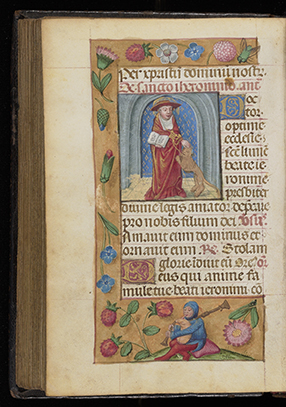 Per xpristū dominū nostr.
De sancto iheronimo. anт̄.
Doc
tor
optime
ecclesie
scē lumē
beate ie
ronime
presbiter
diuine legis amator depcare
pro nobis filium dei. Vsꝰ.
Amauit eum dominus et
ornauit eum. Re. Stolam
glorie iduit eū. Oro.
Deus qui animē fa
mule tue beati ieronimi co